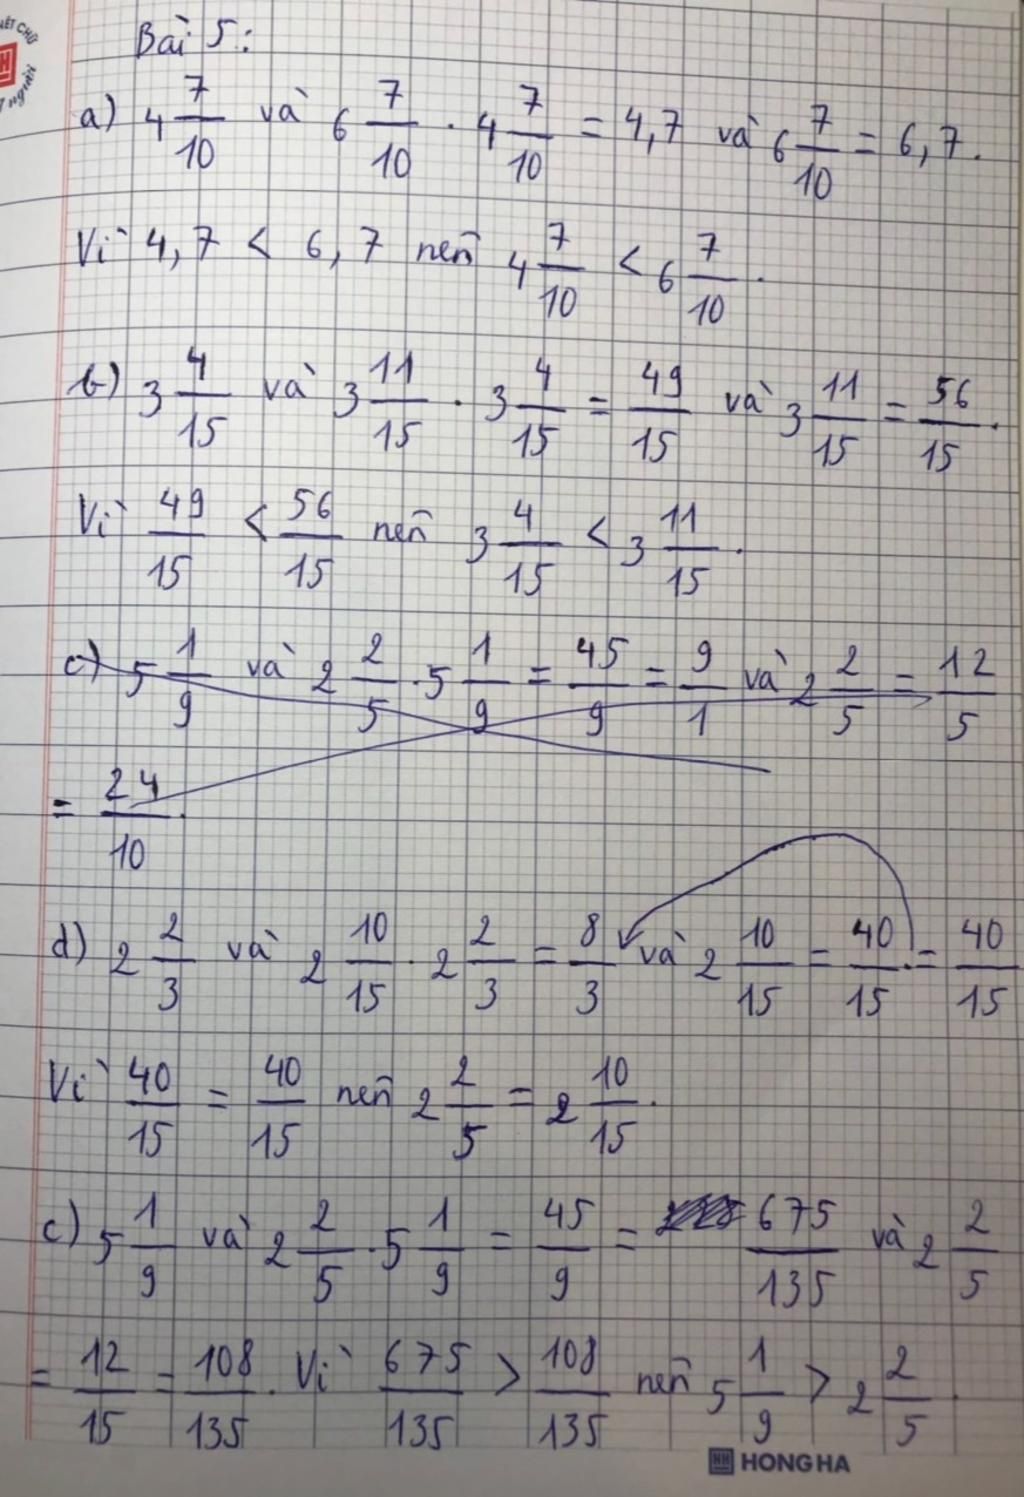 Bài 5:
a) 4 7/10 và 6 7/10 . 4 7/10 = 4,7 và 6 7/10 = 6,7.
Vì 4,7 < 6,7 nên 4 7/10 < 6 7/10.
b) 3 4/15 và 3 11/15 . 3 4/15 = 49/15 và 3 11/15 = 56/15.
Vì 49/15 < 56/15 nên 3 4/15 < 3 11/15.
c) 5 1/9 và 2 2/5 . 5 1/9 = 45/9 = 9/1 và 2 2/5 = 12/5
= 24/10.
d) 2 2/3 và 2 10/15 . 2 2/3 = 8/3 và 2 10/15 = 40/15 . = 40/15
Vì 40/15 = 40/15 nên 2 2/5 = 2 10/15.
c) 5 1/9 và 2 2/5 . 5 1/9 = 45/9 = 675/135 và 2 2/5
= 12/15 = 108/135. Vì 675/135 > 108/135 nên 5 1/9 > 2 2/5.
HONG HA